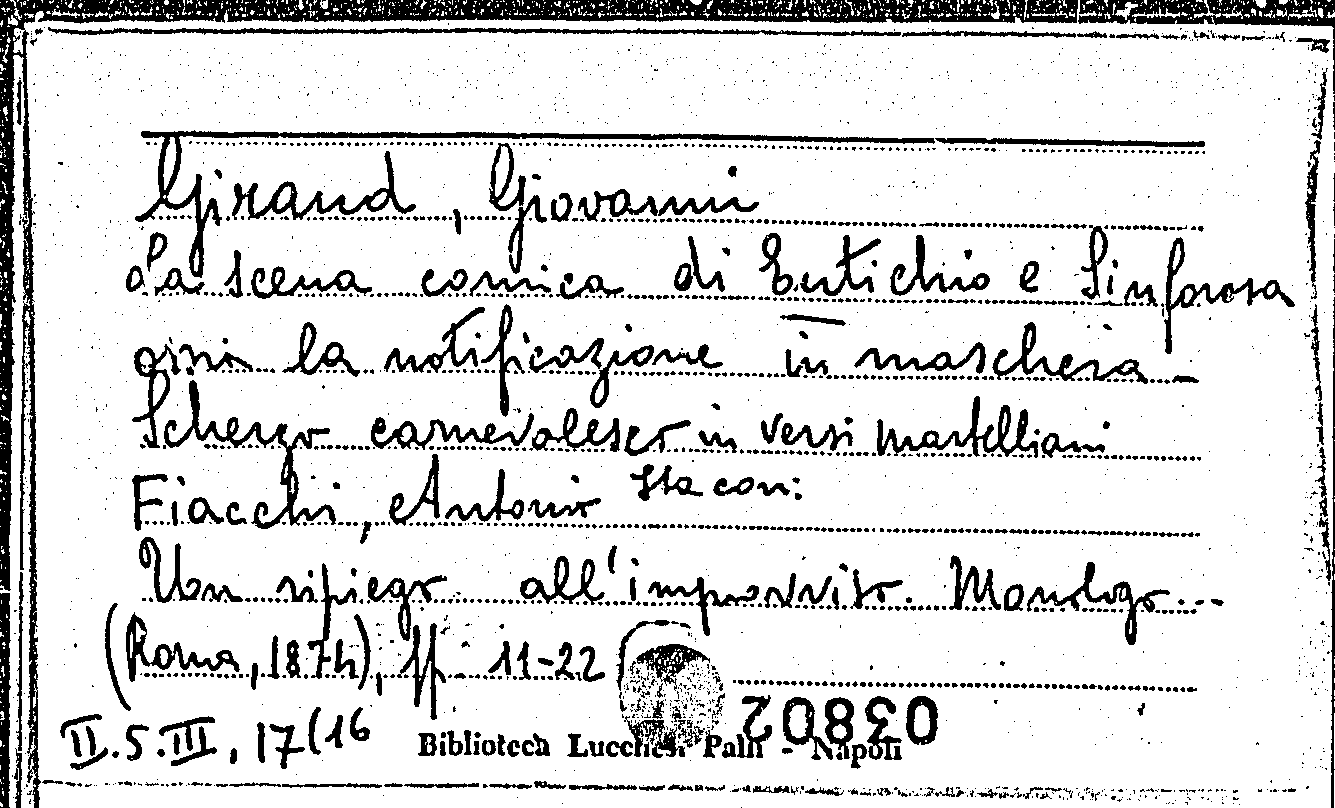 Giraud, Giovanni
La scena comica di Eutichio e Sinforosa
ossia la notificazione in maschera -
Scherzo carnevalesco in versi martelliani
Fiacchi, Antonio sta con:
Un ripiego all'improvviso. Monologo...
(Roma, 1874), pp. 11-22
II.5.III, 17(16
03802
Biblioteca Lucchesi Palli - Napoli